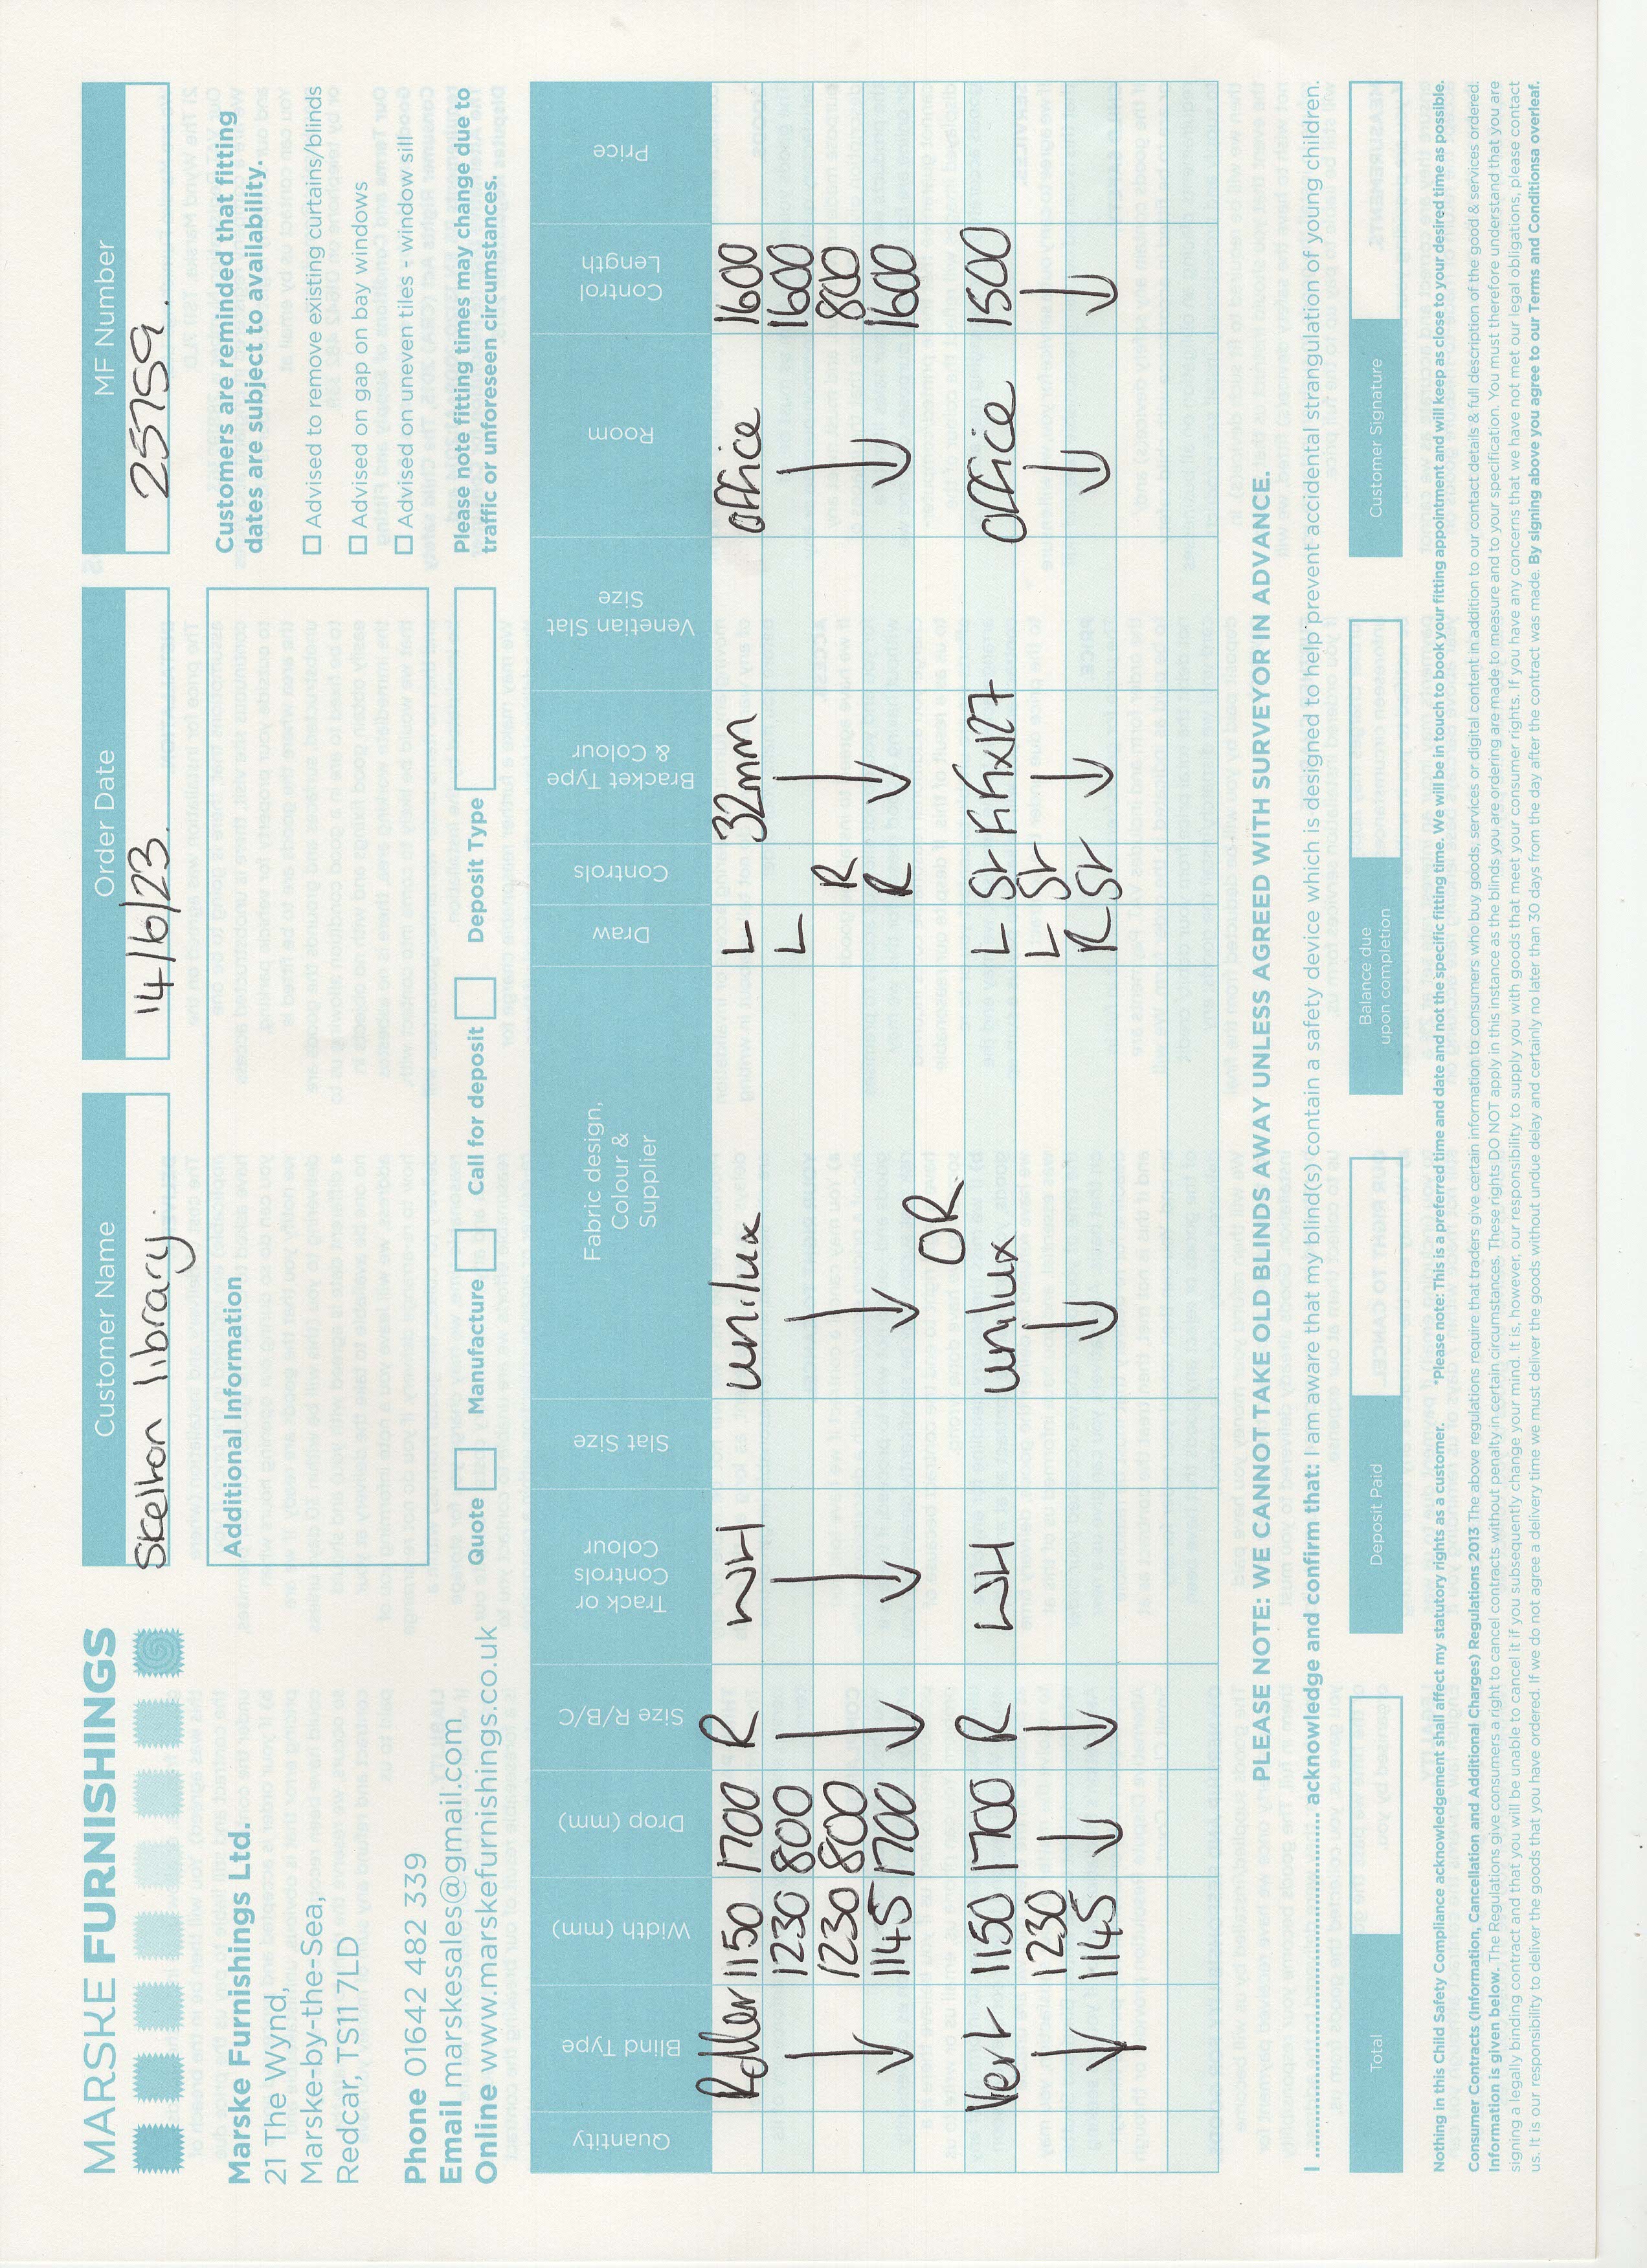 MARSKE FURNISHINGS
Marske Furnishings Ltd.
21 The Wynd,
Marske-by-the-Sea,
Redcar, TS11 7LD
Phone 01642 482 339
Email marskesales@gmail.com
Online www.marskefurnishings.co.uk
Customer Name
Skelton library.
Order Date
14/6/23.
MF Number
23759.
Additional Information
Customers are reminded that fitting
dates are subject to availability.
Advised to remove existing curtains/blinds
Advised on gap on bay windows
Advised on uneven tiles - window sill
Please note fitting times may change due to
traffic or unforeseen circumstances.
Quote Manufacture Call for deposit Deposit Type
Quantity Blind Type Width (mm) Drop (mm) Size R/B/C Track or Controls Colour Slat Size Fabric design, Colour & Supplier Draw Controls Bracket Type & Colour Venetian Slat Size Room Control Length Price
Roller 1150 1700 R WH unilux L 32mm office 1600
↓ 1230 800 ↓ ↓ ↓ L ↓ ↓ 1600
1230 800 R 800
1145 1700 R 1600
OR
Vert 1150 1700 R WH unilux L St Fifix127 office 1500
↓ 1230 ↓ ↓ ↓ L St ↓ ↓ ↓
1145 R St
PLEASE NOTE: WE CANNOT TAKE OLD BLINDS AWAY UNLESS AGREED WITH SURVEYOR IN ADVANCE.
I .......... acknowledge and confirm that: I am aware that my blind(s) contain a safety device which is designed to help prevent accidental strangulation of young children.
Total Deposit Paid Balance due upon completion Customer Signature
Nothing in this Child Safety Compliance acknowledgement shall affect my statutory rights as a customer. *Please note: This is a preferred time and date and not the specific fitting time. We will be in touch to book your fitting appointment and will keep as close to your desired time as possible.
Consumer Contracts (Information, Cancellation and Additional Charges) Regulations 2013 The above regulations require that traders give certain information to consumers who buy goods, services or digital content in addition to our contact details & full description of the good & services ordered.
Information is given below. The Regulations give consumers a right to cancel contracts without penalty in certain circumstances. These rights DO NOT apply in this instance as the blinds you are ordering are made to measure and to your specification. You must therefore understand that you are
signing a legally binding contract and that you will be unable to cancel it if you subsequently change your mind. It is, however, our responsibility to supply you with goods that meet your consumer rights. If you have any concerns that we have not met our legal obligations, please contact
us. It is our responsibility to deliver the goods that you have ordered. If we do not agree a delivery time we must deliver the goods without undue delay and certainly no later than 30 days from the day after the contract was made. By signing above you agree to our Terms and Conditionsa overleaf.